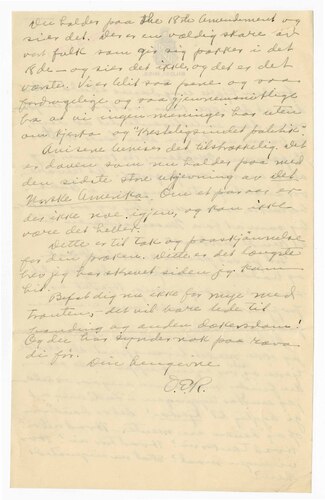 Du holder paa the 18th Amendment og
sies det. Der er en vældig skare av
vort folk som gir sig pokker i det
18de — og sies det ikke, og det er det
værste. Vi er blit saa pene og saa
fordragelige og saa gjennemsnitlige
ba at vi ingen meninger har uten
om kjerka og "kristeligsindet politik".
Aviserne beviser det tilstrækkelig. Det
er døven som nu holder paa med
den sidste store utjevning av Det
Norske Amerika. Om et par aar er
der ikke noe igjen, og kan ikke
være det heller.
Dette er til tak og paaskjønnelse
for din præken. Dette er det længste
brev jeg har skrevet siden jeg kom
hit.
Befat dig nu ikke for mye med
Tronten, det vil bare lede til
banding og anden djævelsdom!
Og du har synder nok paa ræva
di før.
Din hengivne
O.E.R.